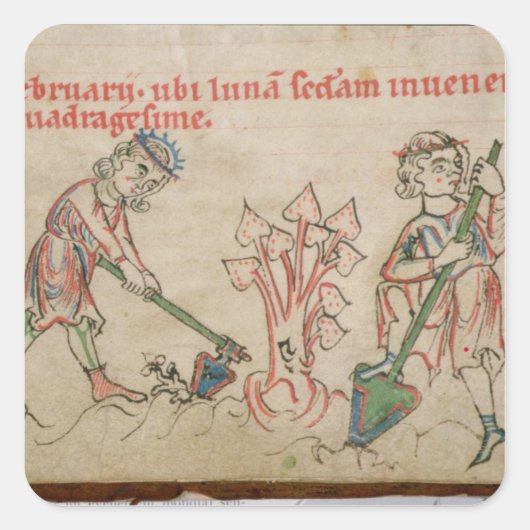 ebruarij · ubi lunā scdam inuener
uadragesime.